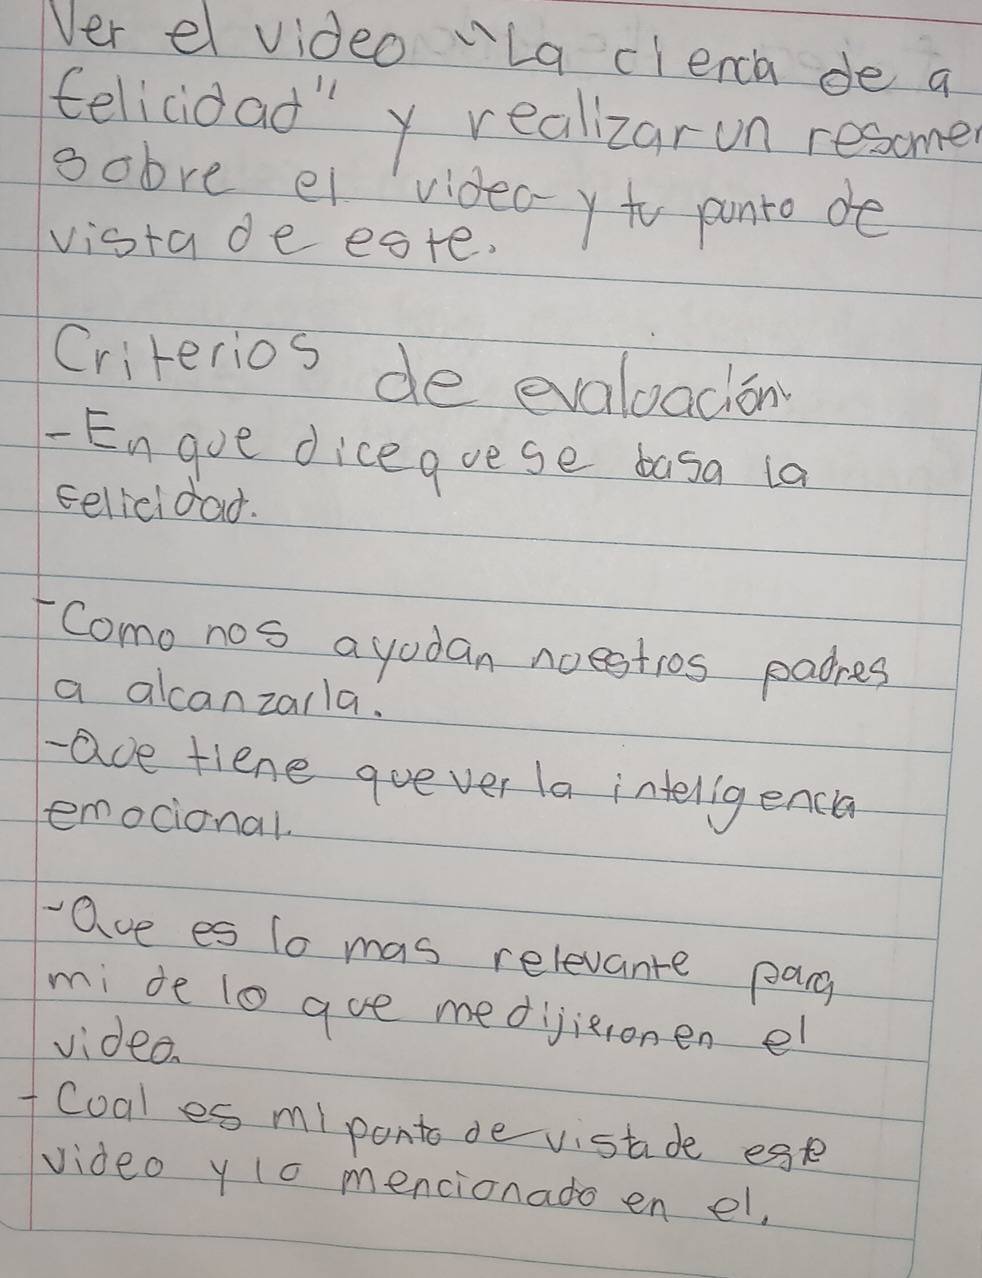 Ver el video "La ciencia de a
felicidad" y realizar un resumen
sobre el video y tu punto de
vista de este.
Criterios de evaluación.
-En que dice que se basa la
felicidad.
-Como nos ayudan nuestros padres
a alcanzarla.
-Que tiene que ver la inteligencia
emocional.
-Que es lo mas relevante para
mi de lo que me dijieron en el
video.
-Cual es mi punto de vista de este
video y lo mencionado en el.